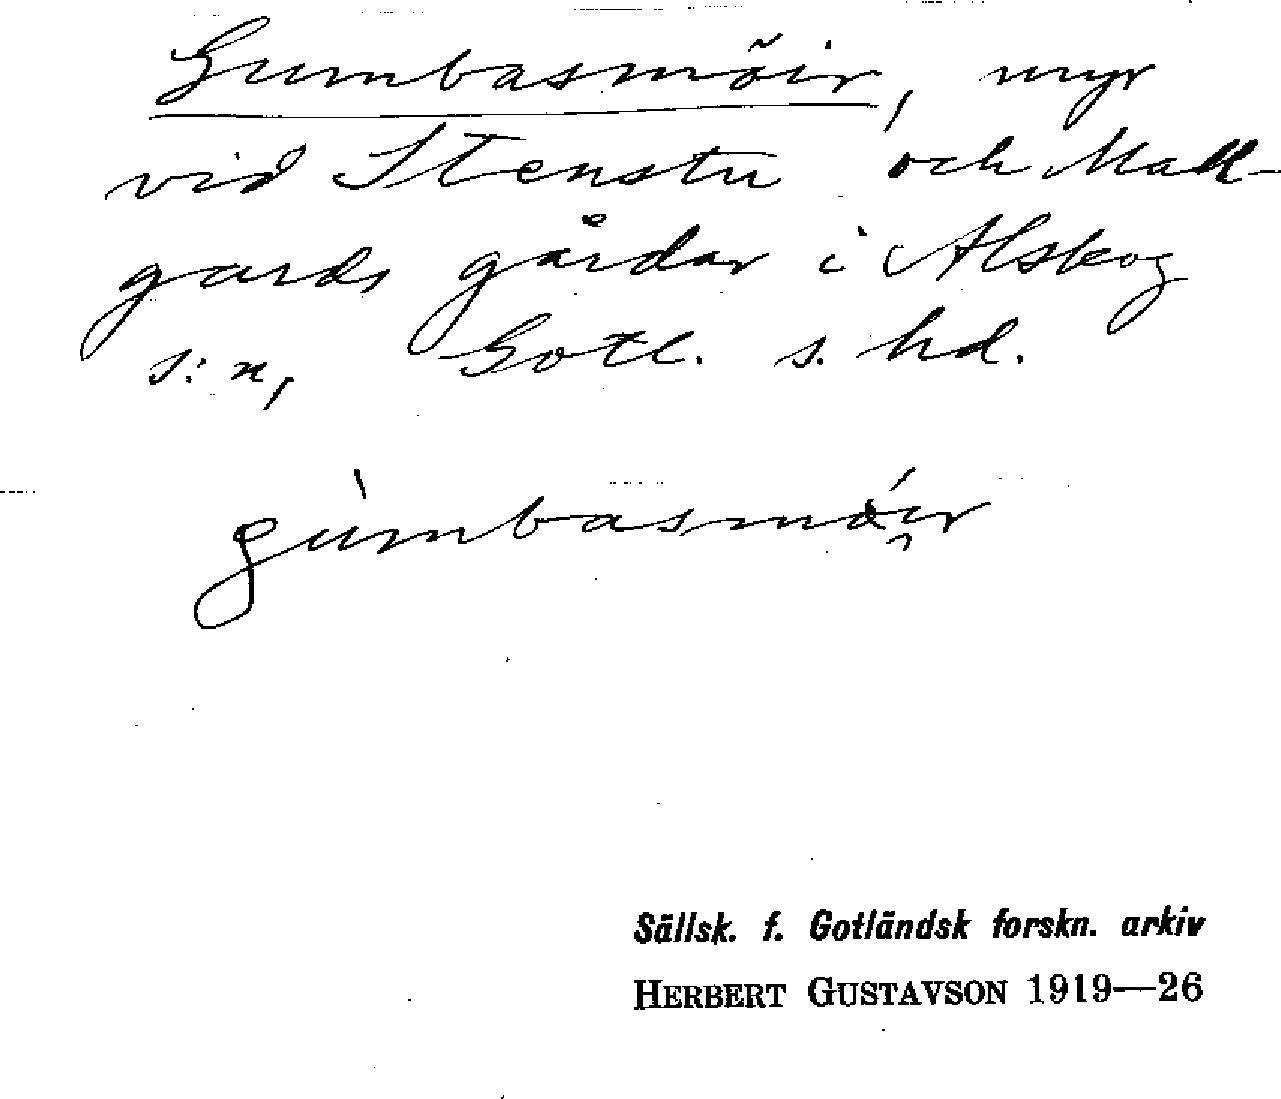 Gumbasmöir, myr
vid Stenstu och Mall-
gards gårdar i Alskog
s:n, Gotl. s. hd.
Sällsk. f. Gotländsk forskn. arkiv
HERBERT GUSTAVSON 1919—26